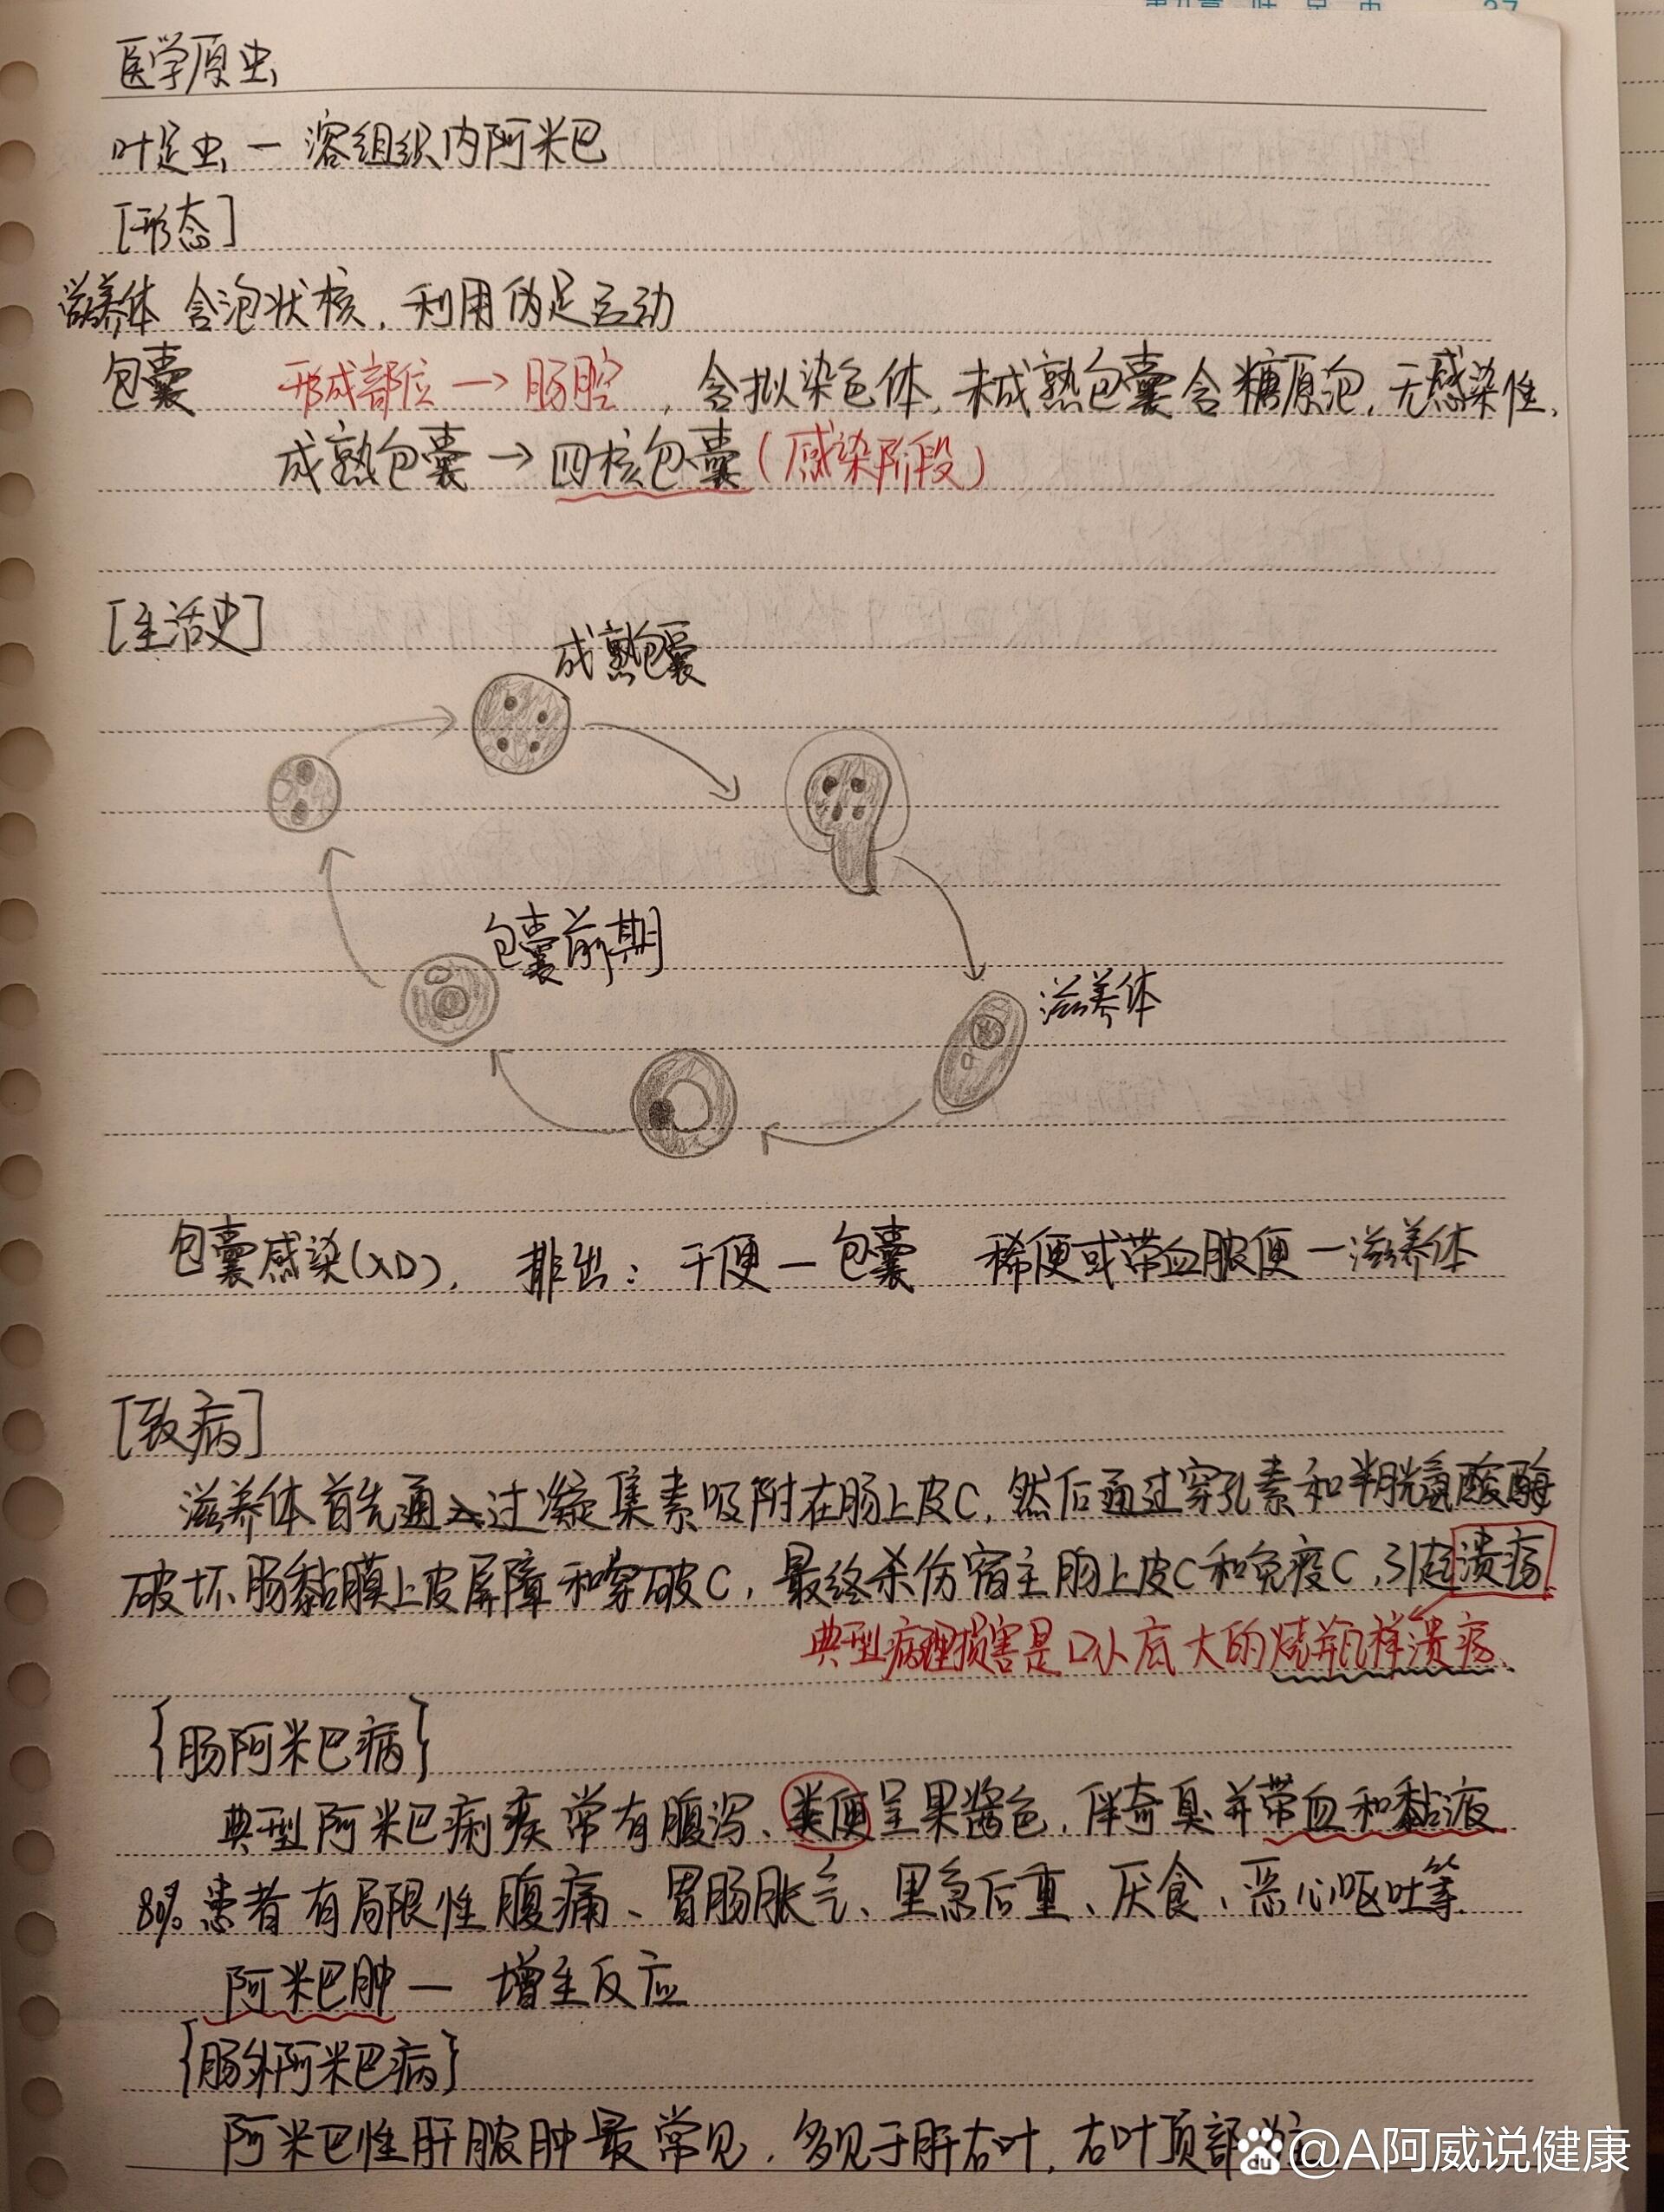 医学原虫
叶足虫 — 溶组织内阿米巴
[形态]
滋养体 含泡状核，利用伪足运动
包囊 形成部位 → 肠腔，含拟染色体，未成熟包囊含糖原泡，无感染性，
成熟包囊 → 四核包囊（感染阶段）
[生活史]
成熟包囊
包囊前期
滋养体
包囊感染(XD)， 排出：干便 — 包囊 稀便或带血脓便 — 滋养体
[致病]
滋养体首先通过凝集素吸附在肠上皮C，然后通过穿孔素和半胱氨酸酶
破坏肠黏膜上皮屏障和穿破C，最终杀伤宿主肠上皮C和免疫C，引起溃疡
典型病理损害是口小底大的烧瓶样溃疡。
{肠阿米巴病}
典型阿米巴痢疾常有腹泻、粪便呈果酱色，伴奇臭并带血和黏液
80%患者有局限性腹痛、胃肠胀气、里急后重、厌食、恶心呕吐等
阿米巴肿 — 增生反应
{肠外阿米巴病}
阿米巴性肝脓肿最常见，多见于肝右叶，右叶顶部
du @A阿威说健康